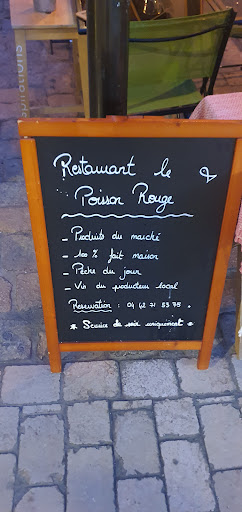 Restaurant le
Poisson Rouge
- Produits du marché
- 100% fait maison
- Pêche du jour
- Vin du producteur local
Reservation : 04 42 71 55 75.
* Service du soir uniquement *